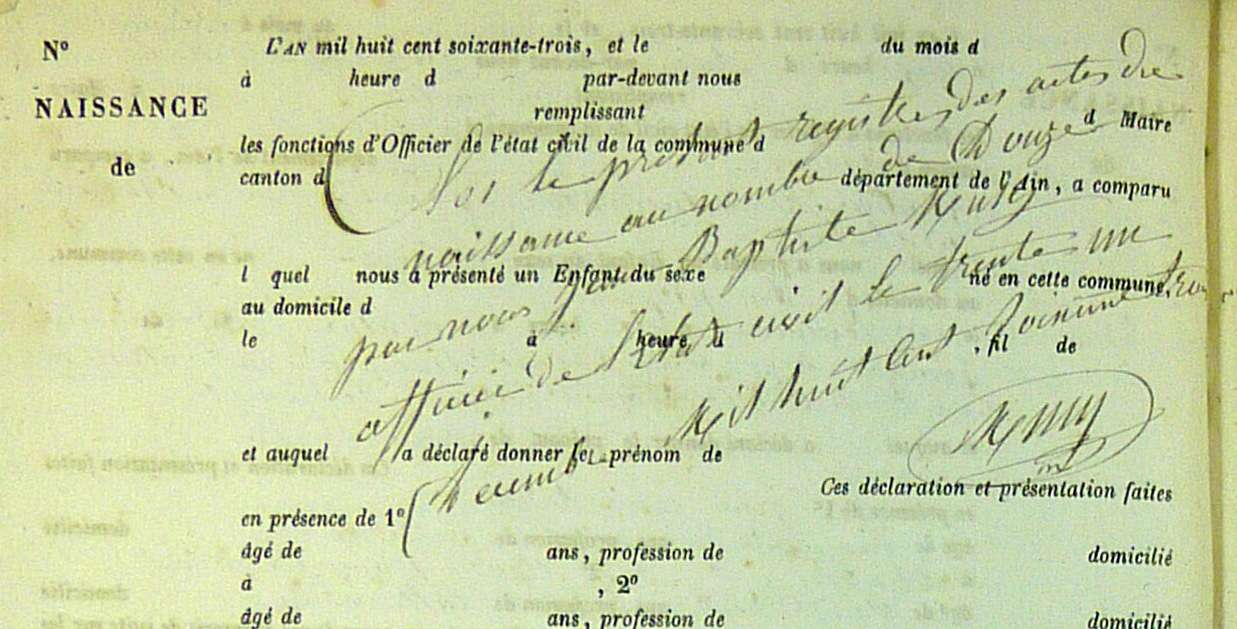 N°
L'AN mil huit cent soixante-trois, et le du mois d
à heure d par-devant nous
NAISSANCE
remplissant
les fonctions d'Officier de l'état civil de la commune d d Maire
de
canton d département de l'Ain, a comparu
l quel nous a présenté un Enfant du sexe né en cette commune,
au domicile d
le à heure d , fil de
et auquel a déclaré donner le prénom de
Ces déclaration et présentation faites
en présence de 1°
âgé de ans, profession de domicilié
à , 2°
âgé de ans, profession de domicilié
le présent registre des actes de
naissance au nombre de Douze
par nous Jean Baptiste
officier de l'état civil le trente un
Décembre Mil huit cent soixante trois